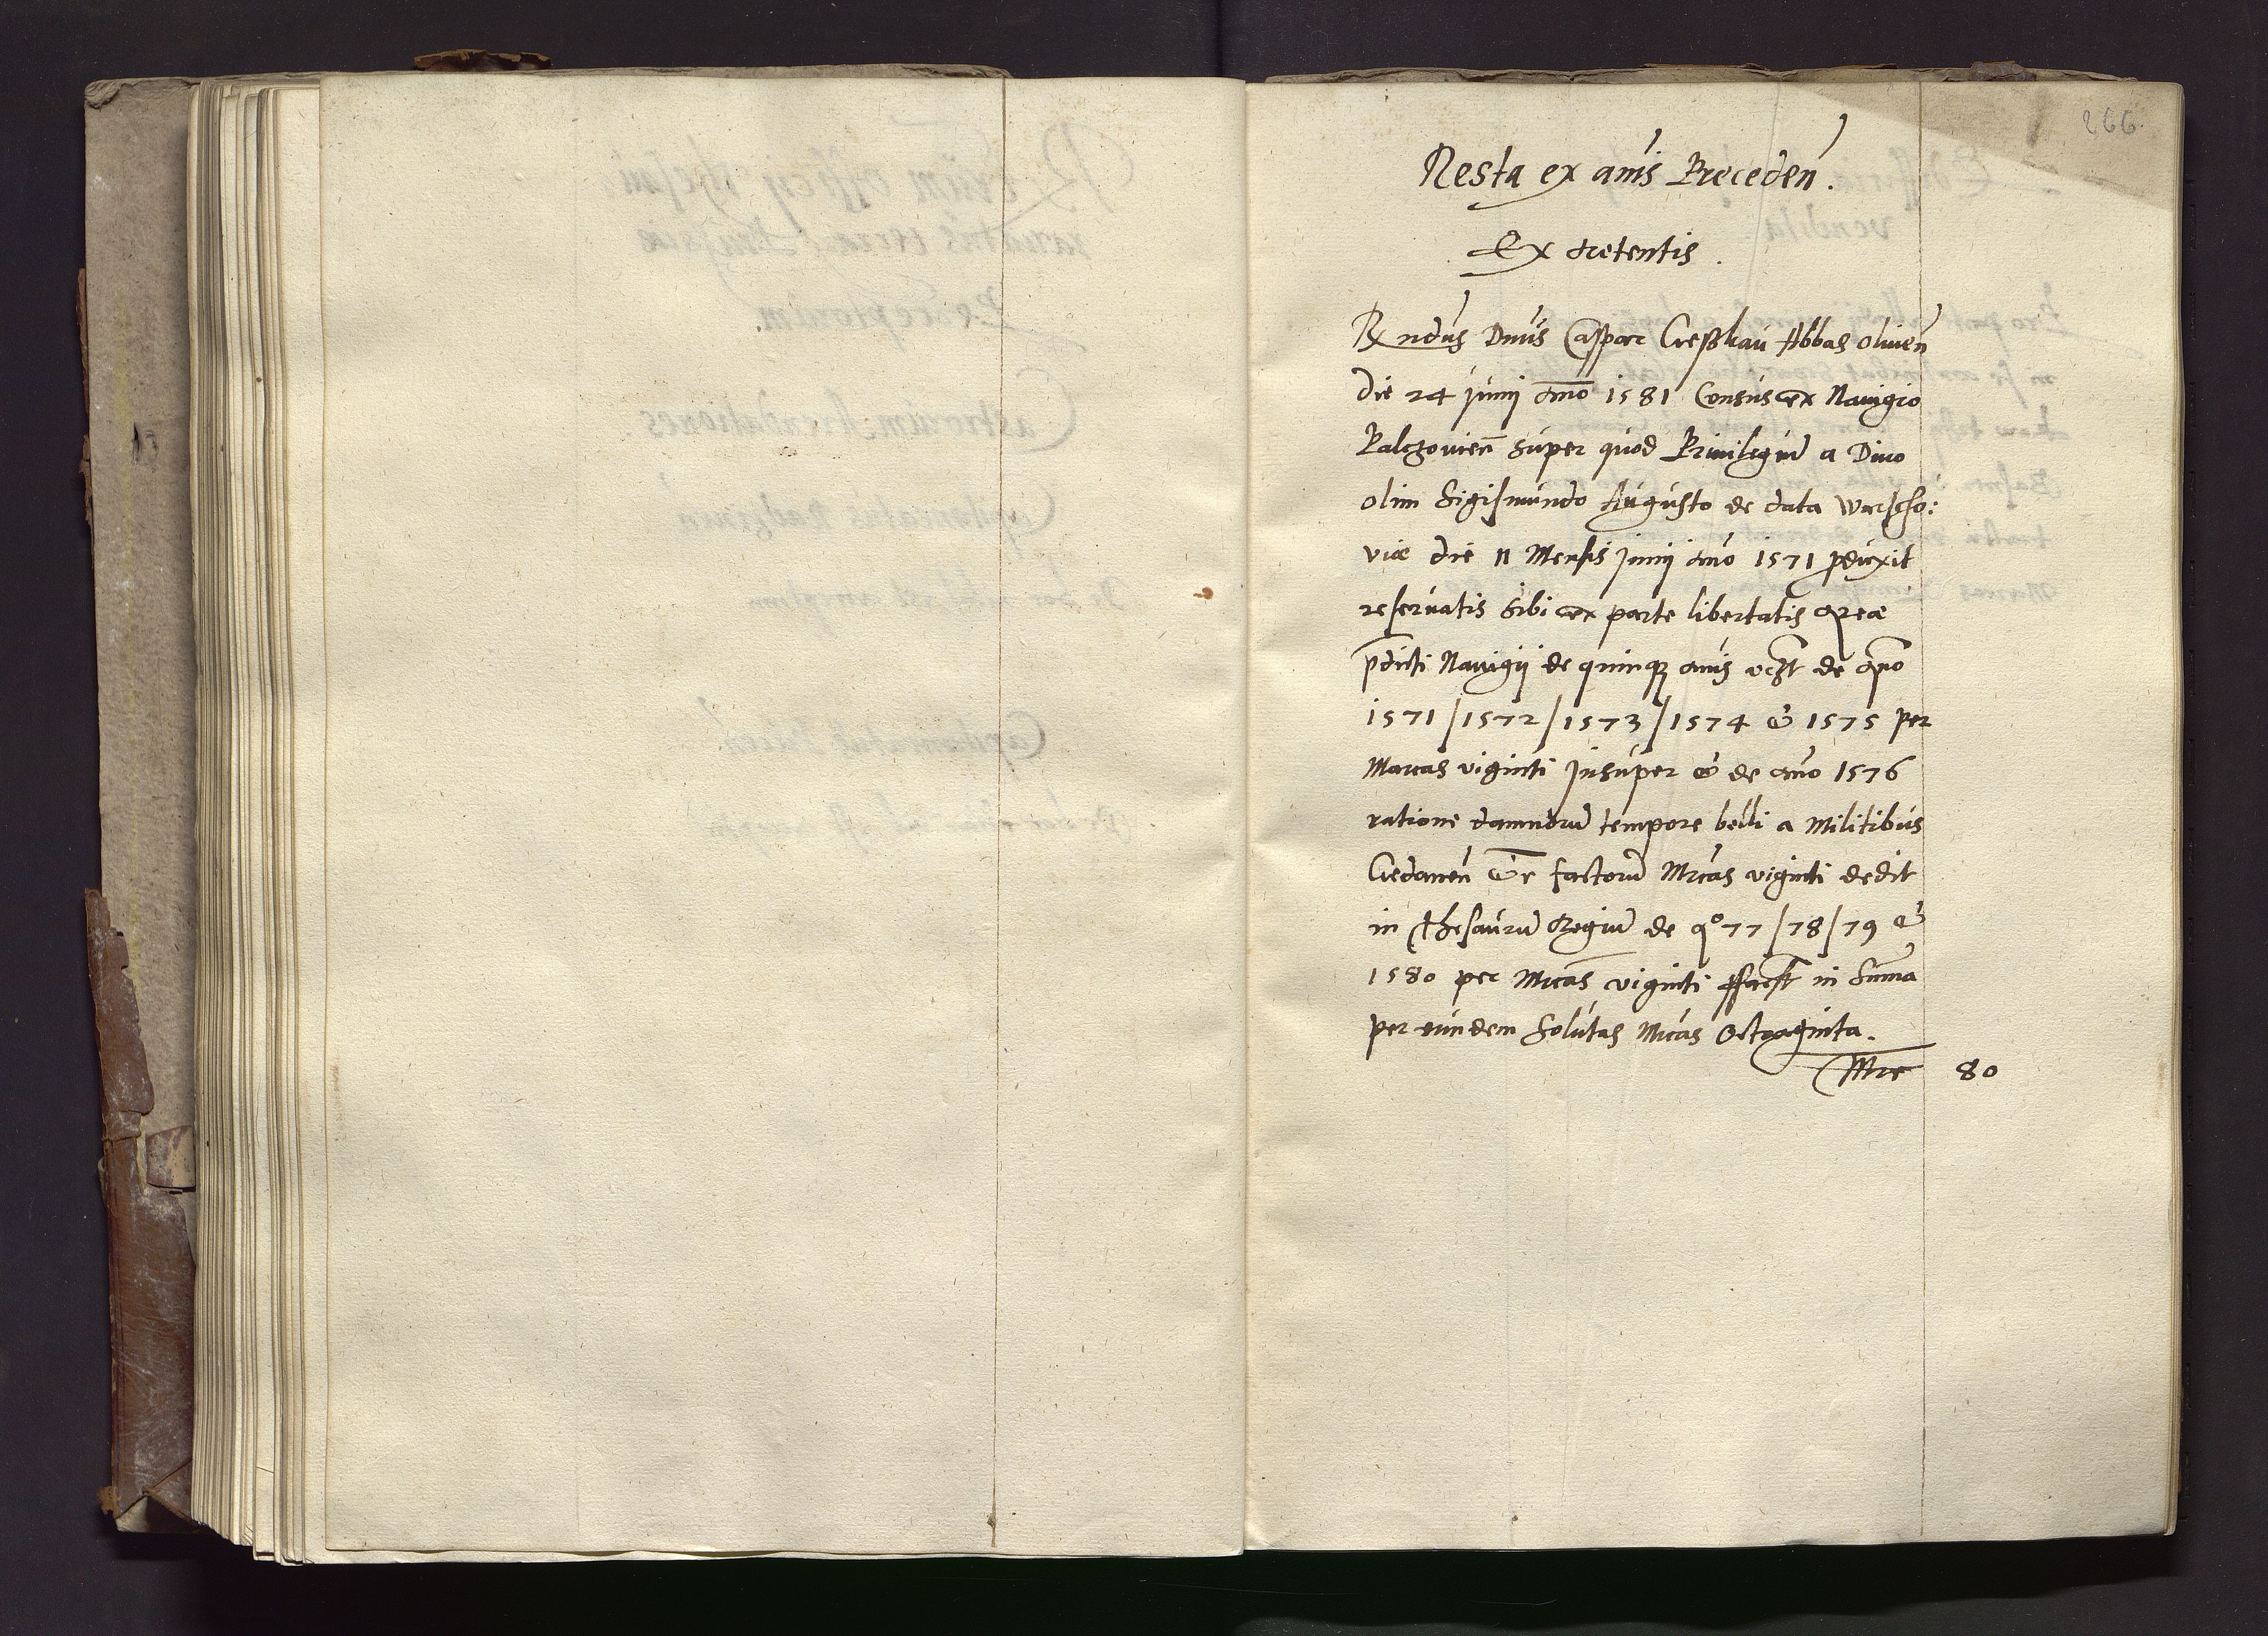 266.
Resta ex annis Preceden.
Ex retentis.
Rndus Dnus Caspar Geschkau Abbas oliuen
die 24 Junij anno 1581 Census ex Nauigio
Palczouien super quod Priuilegiu a Diuo
olim Sigismundo Augusto de data Warscho:
viae die 11 Mensis Junij anno 1571 peduxit
reseruatis Sibi ex parte libertatis
pdicti Nauigij de quinq annis vczt de ano
1571/1572/1573/1574 & 1575 per
Marcas viginti Insuper & de anno 1576
ratione damnoru tempore belli a Militibus
Gedanen factoru Mrcas viginti dedit
in thesauru Regiu de ao 77/78/79 &
1580 per Mrcas viginti in Suma
per eundem Solutas Mrcas Octoaginta.
Mrc 80